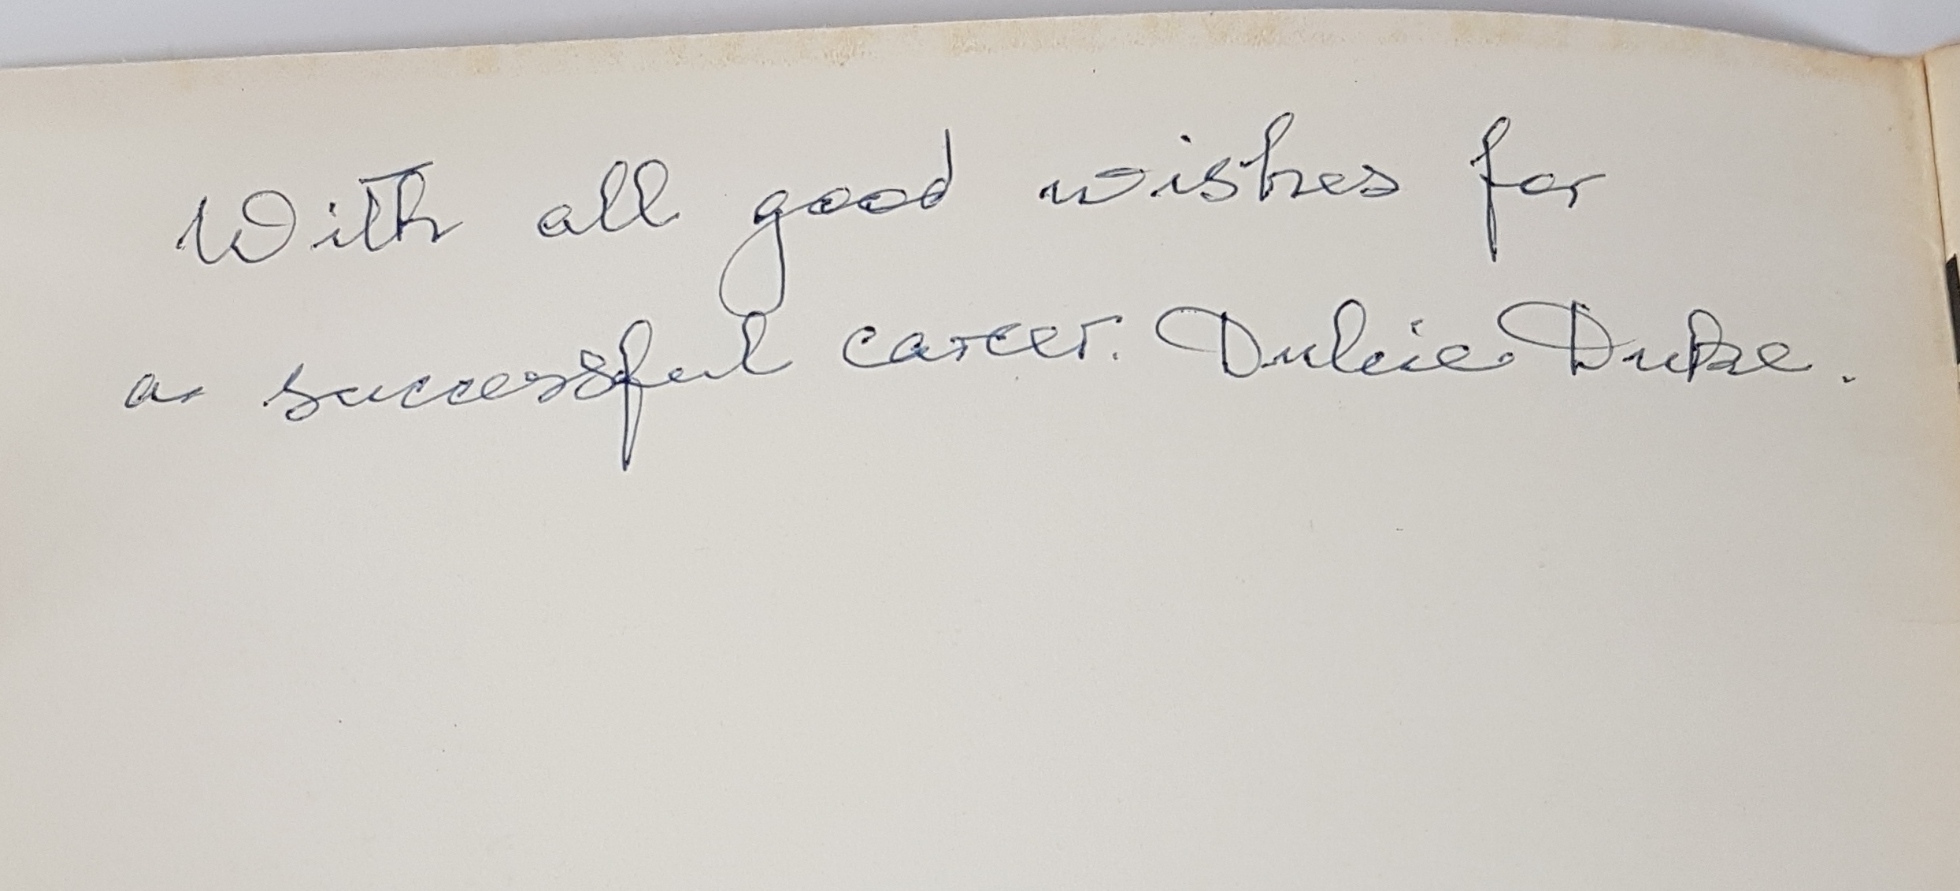 With all good wishes for
a successful career. Dulcie Duke.